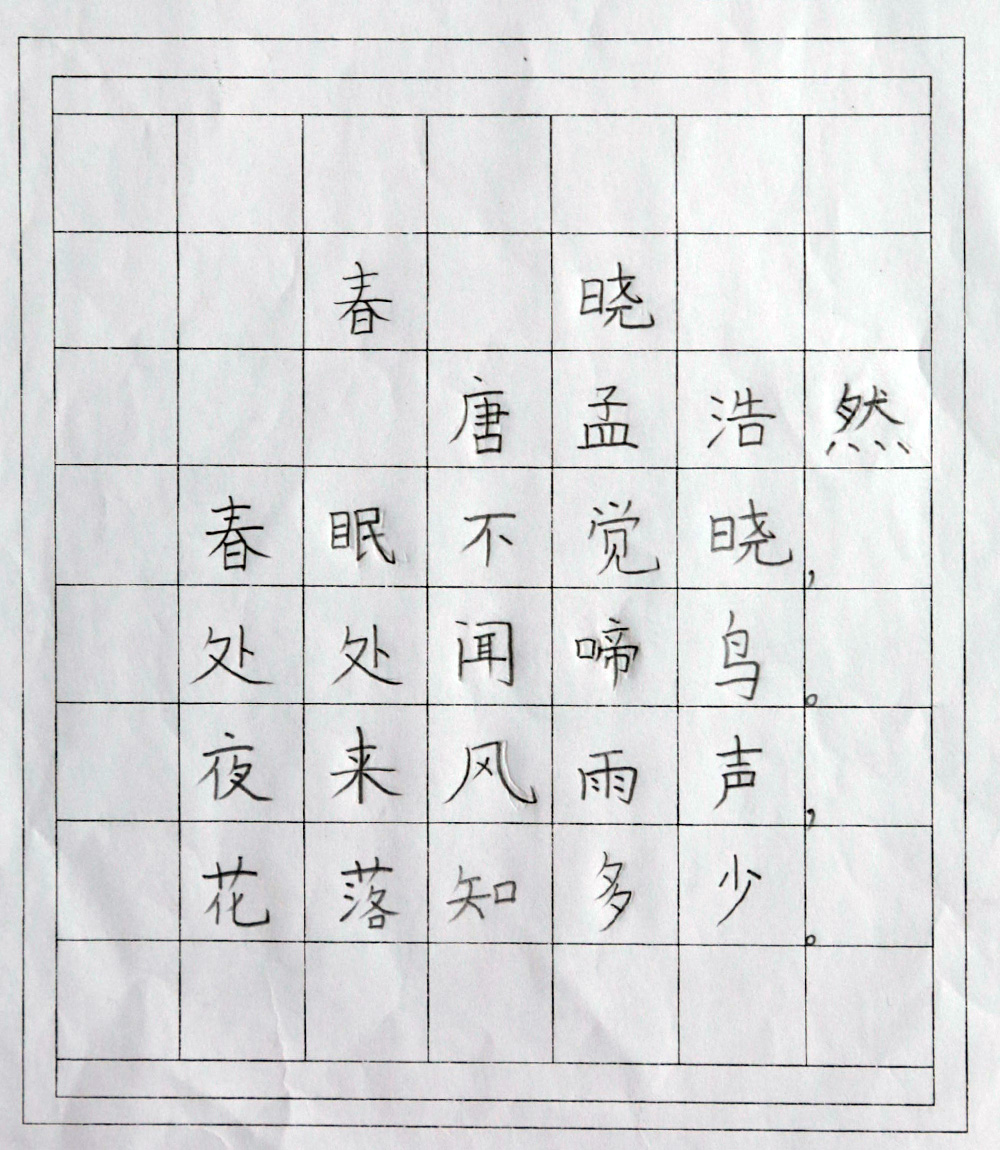 春 晓
唐孟浩然
春眠不觉晓,
处处闻啼鸟。
夜来风雨声,
花落知多少。